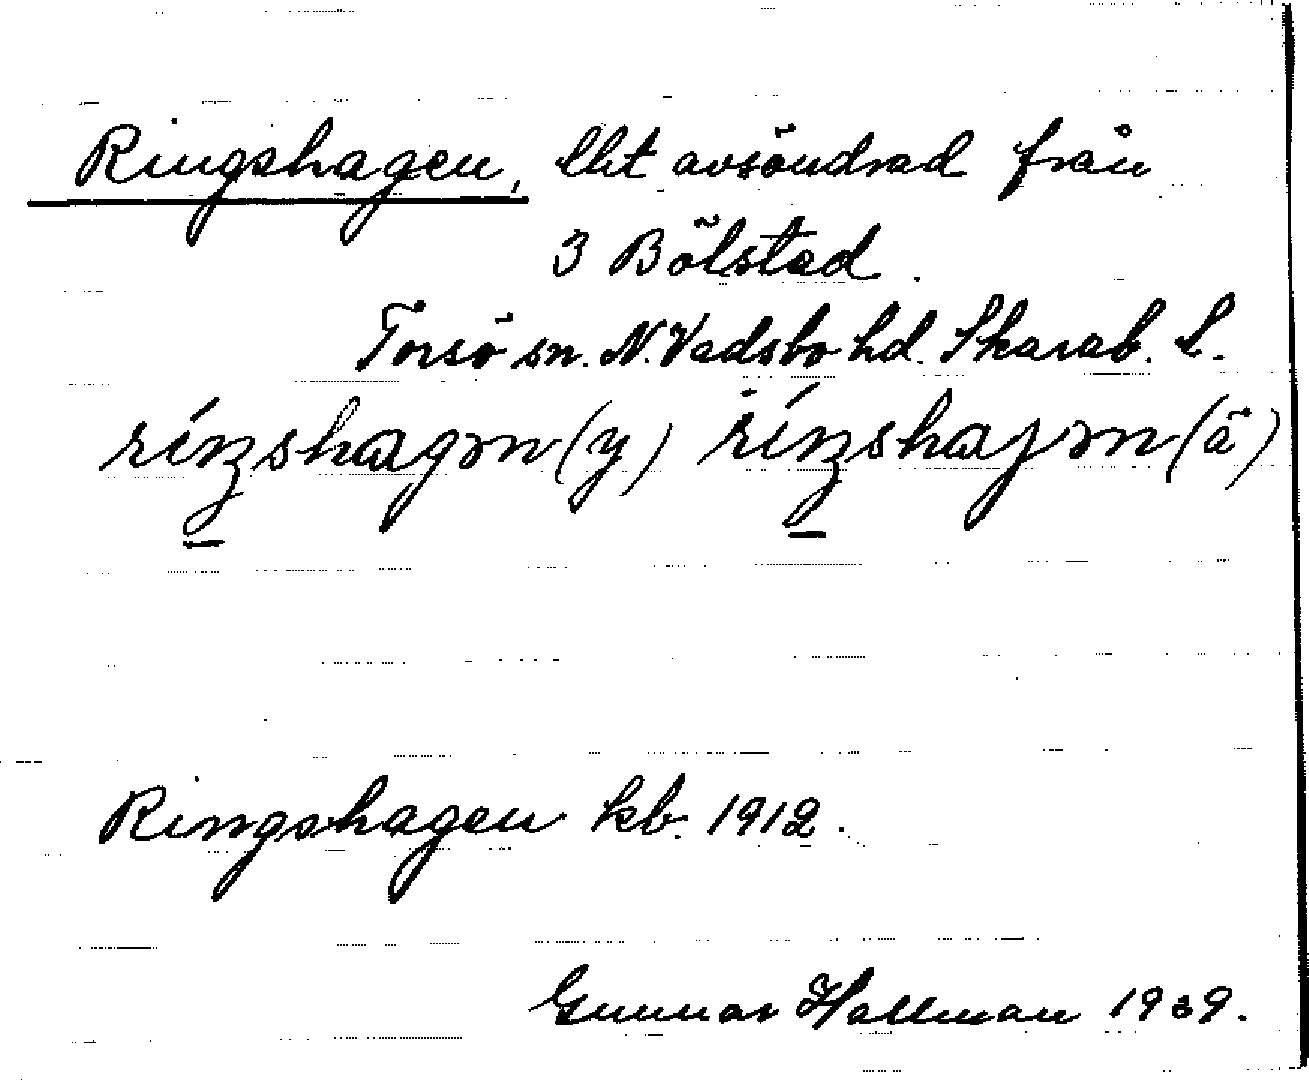 Ringshagen, lht avsöndrad från
3 Bölstad.
Torsö sn. N. Vadsbo hd. Skarab. L.
(y) (ä)
Ringshagen kb. 1912.
Gunnar Hallman 1939.